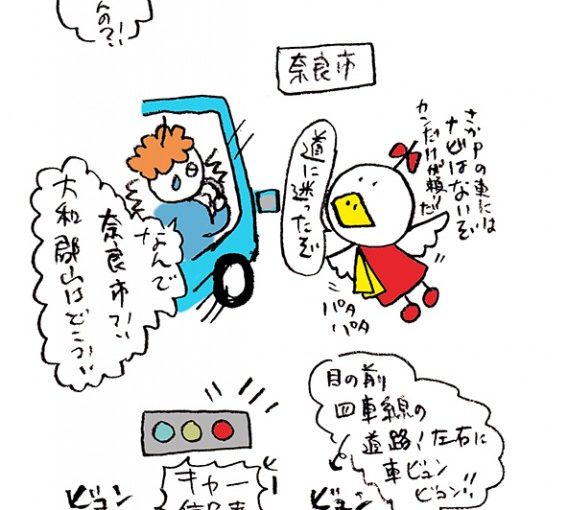 んの?!
奈良市
さかPの車には
ナビはないぞ
カンだけが頼りだ
道に迷ったぞ
なんで
奈良市?!
大和郡山はどこ?!
パタ
パタ
目の前
四車線の
道路!左右に
車ビュン
ビュン!!
キャー
ビュン
ビュン